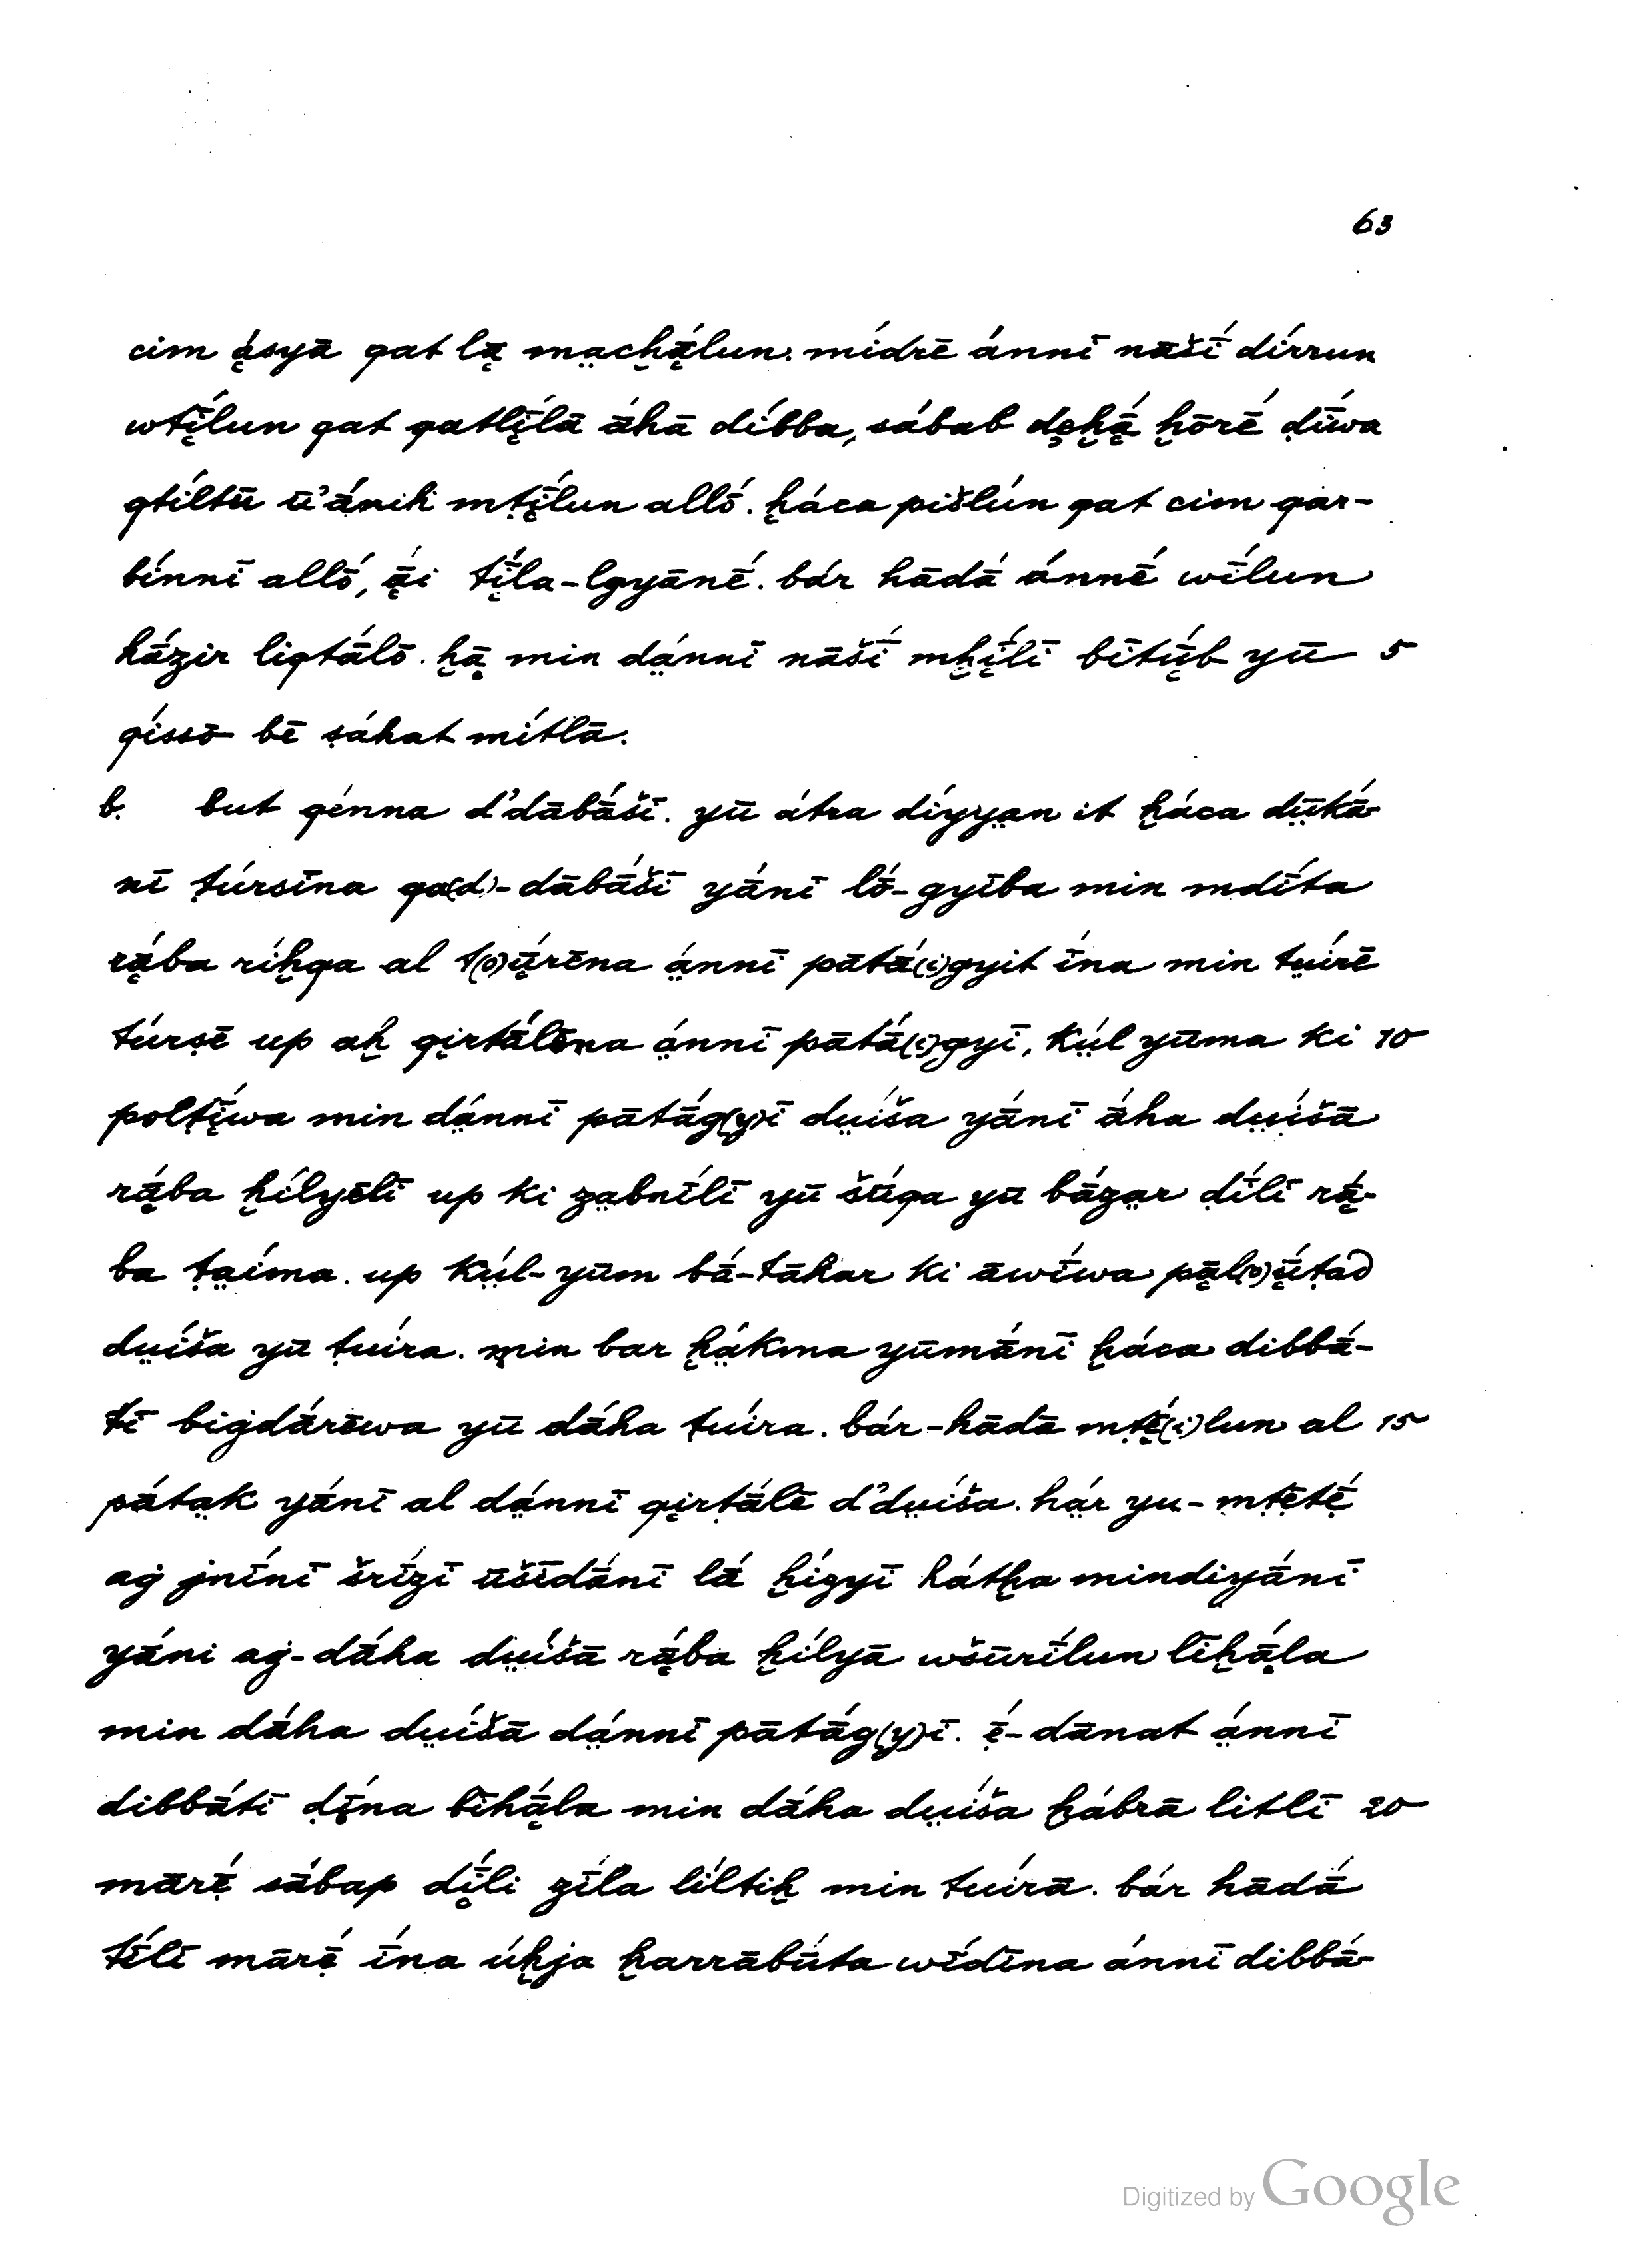 63
cim ą́syā qat lą ma̤cḫą́lun. mídrē ánnī nāšī́ dírrun
wtį̄́lun qat qatlį̄́lā ā́hā díbba, sábab dęḫą̄́ ḫōrḗ ḍū́wa
qtíltū ū'ániḥ mṭį̄́lun allṓ. ḫáca pišlún qat cim qar-
bínnī allṓ, ą̄́i tį̄́la-lgyānḗ. bár hādā́ ánnē wī́lun
házir liqtā́lō. ḫą̄ min dá̤nnī nāšī́ mḫį̄́lī bītų̄́b yū 5
qíssō bē ṣáhat mítlā.
b. but qénna d'dābā́šī. yū átra díyya̤n it ḫáca dṳ̄kā́-
nī ṭúrsīna qa(d)-dābā́šī yā́nī lṓ-gyība min mdī́ta
rą̄́ba ríḫqa al t(o)ų̄́rēna á̤nnī pātā́(i)gyit ī́na min tṳírē
túrṣē up aḫ qįrtā́lēna á̤nnī pātā́(i)gyī, kṳ́l yūma ki 10
polṭį̄́wa min dá̤nnī pātā́g(y)ī dṳíša yā́nī ā́ha dṳíšā
rą̄́ba ḫílyēlī up ki za̤bnī́lī yū šū́qa yū bāza̤r ḍī́lī rą̄́-
ba ṭa̤íma. up kṳ́l-yūm bā́-tāhar ki āwī́wa pą̄l(o)ų̄́ṭad
dṳíša yū ṭuíra. min bar ḫá̤kma yūmā́nī ḫáca dibbā́-
tī biġdā́rēwa yū dā́ha ṭuíra. bár-hādā mṭę̄́(i)lun al 15
pā́ta̤k yā́nī al dá̤nnī qįrṭā́lē d'dṳíša. há̤r yu-mṭēṭḗ
aġ jnī́nī šrī́zī ūšīdā́nī lā́ ḫízyī hátḫa mindiyā́nī
yā́ni aġ-dā́ha dṳíšā rą̄́ba ḫílyā wšūrī́lun līḫą̄́la
min dā́ha dṳíšā dá̤nnī pātā́g(y)ī. ẹ̄́-dānat á̤nnī
dibbā́tī dį̄́na bīhą̄́la min dā́ha dṳíša ḫábrā litlī 20
mārẹ̄́ sābap dį̄́li zī́la líltiḫ min tuírā. bár hādā́
tī́lī mārẹ̄́ ī́na úḫja ḫarrābū́ta wī́dīna ánnī dibbā́-
Digitized by Google